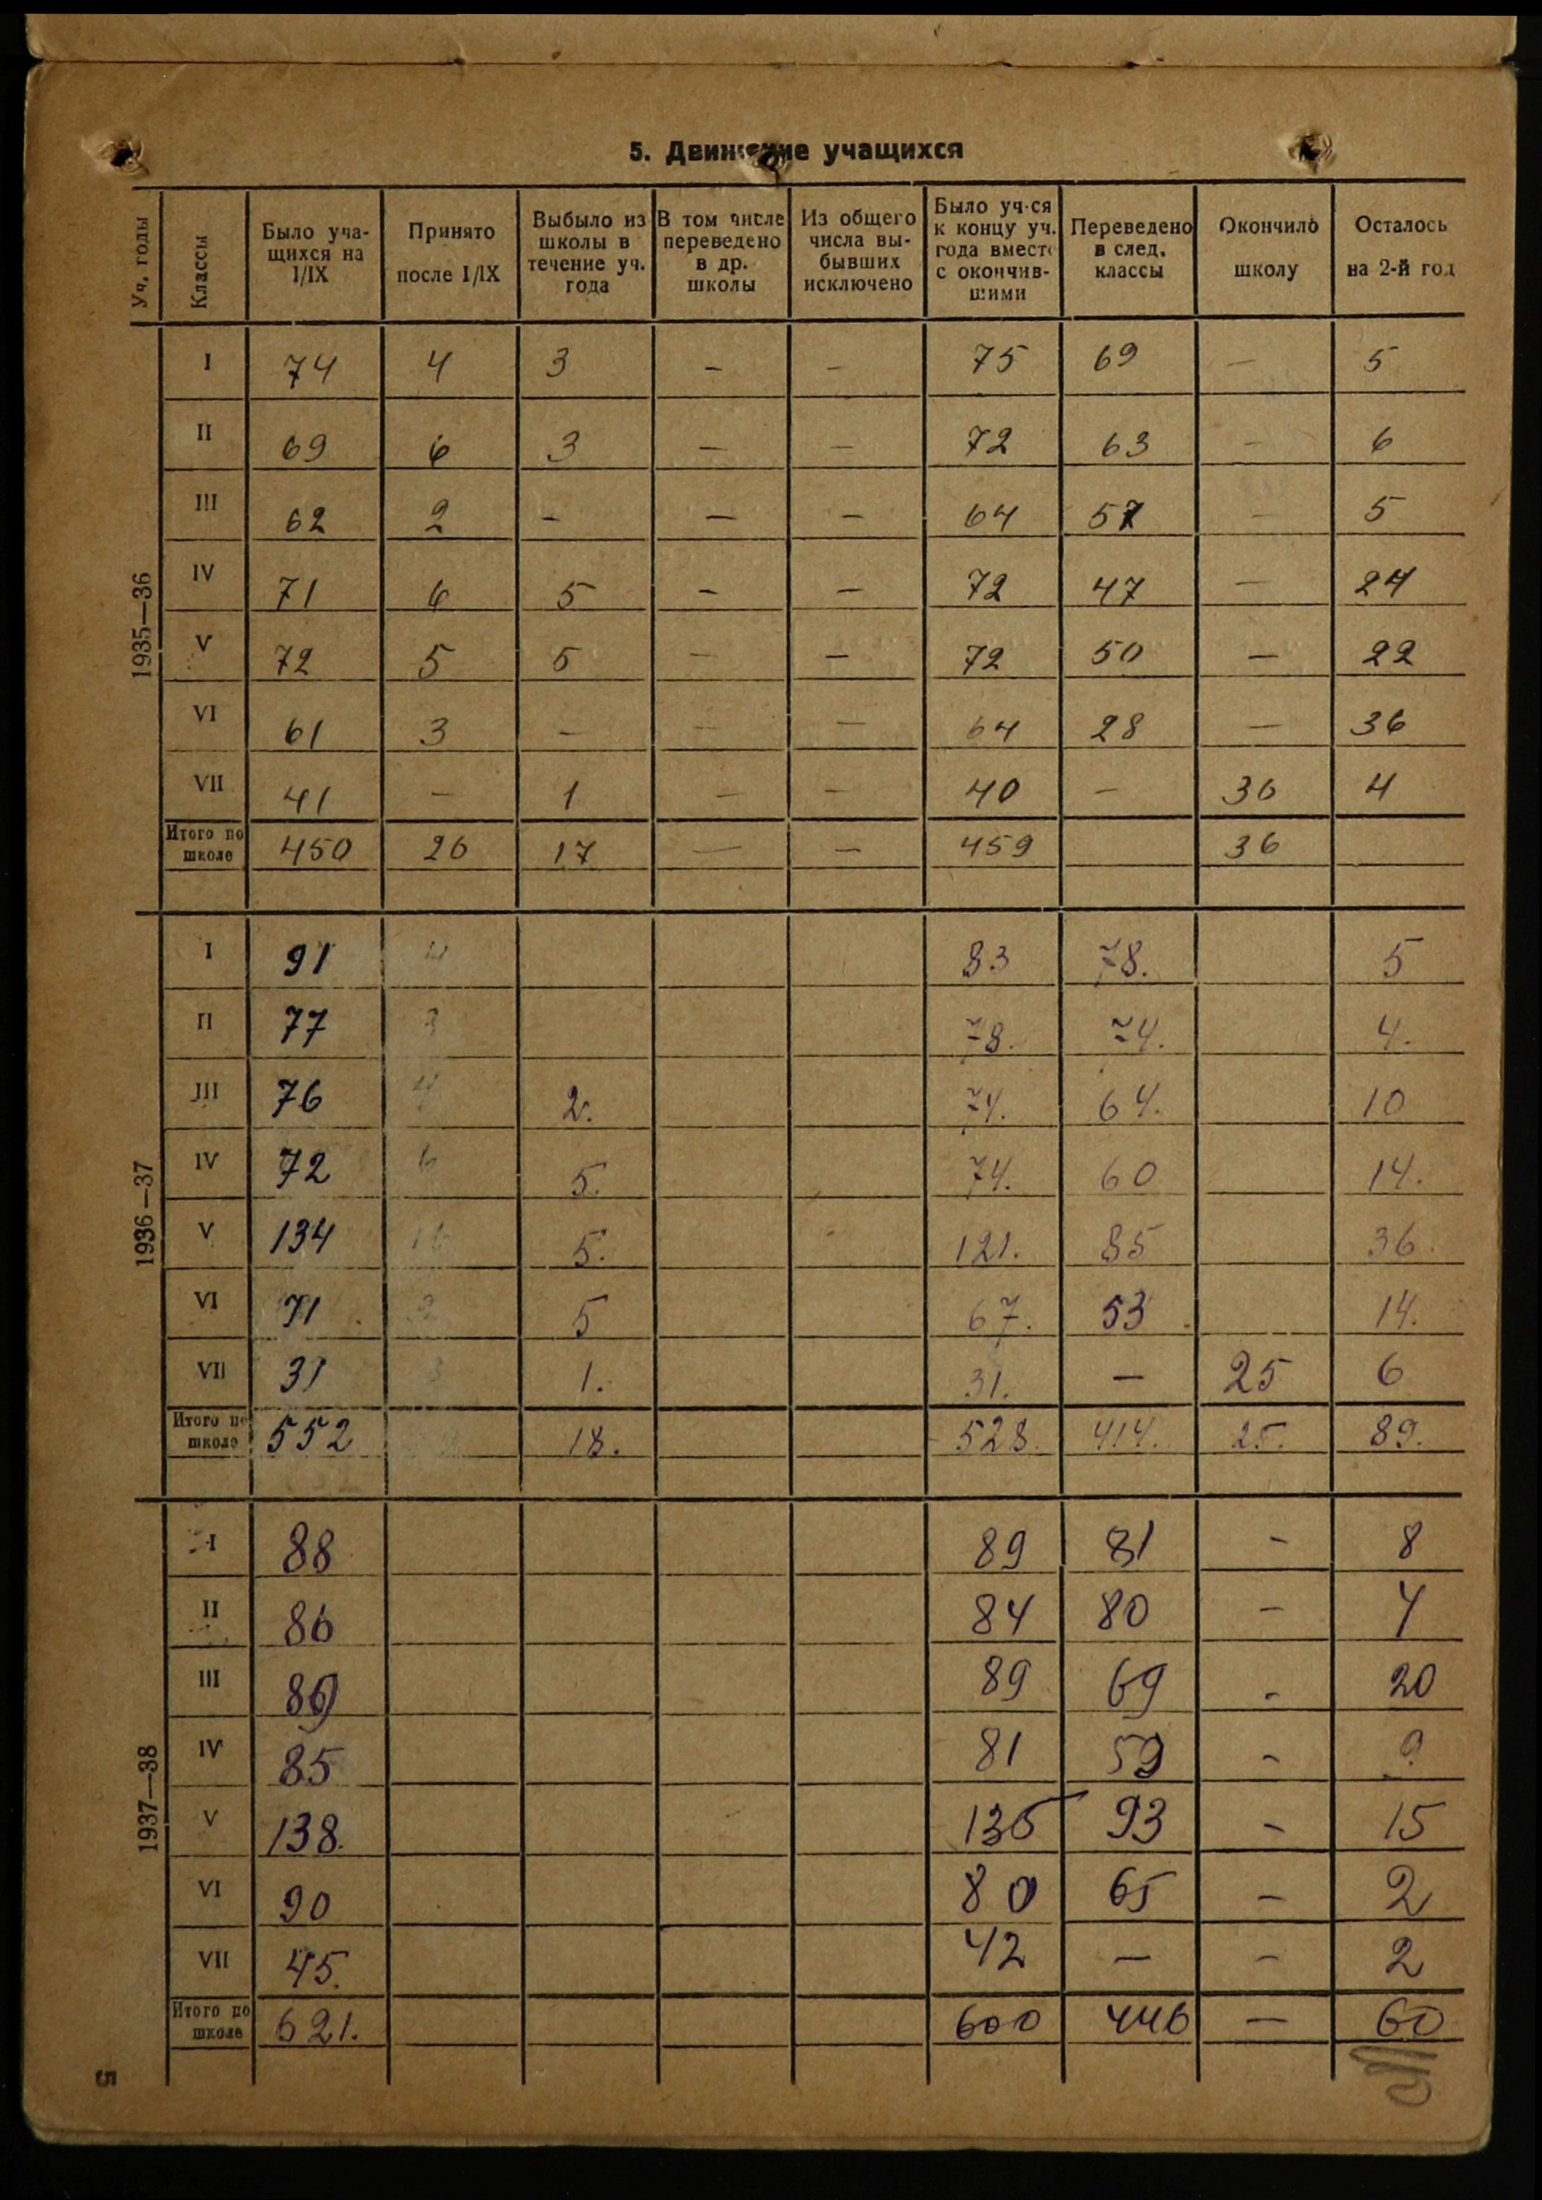 5. Движение учащихся
Уч. годы | Классы | Было уча-щихся на I/IX | Принято после I/IX | Выбыло из школы в течение уч. года | В том числе переведено в др. школы | Из общего числа вы-бывших исключено | Было уч-ся к концу уч. года вместе с окончив-шими | Переведено в след. классы | Окончило школу | Осталось на 2-й год
1935—36
I 74 4 3 — — 75 69 — 5
II 69 6 3 — — 72 63 — 6
III 62 2 — — — 64 57 — 5
IV 71 6 5 — — 72 47 — 24
V 72 5 5 — — 72 50 — 22
VI 61 3 — — — 64 28 — 36
VII 41 — 1 — — 40 — 36 4
Итого по школе 450 26 17 — — 459 36
1936—37
I 91 4 83 78. 5
II 77 3 78. 74. 4.
III 76 4 2. 74. 64. 10
IV 72 6 5. 74. 60 14.
V 134 5. 121. 85 36.
VI 71 5 67. 53 14.
VII 31 3 1. 31. — 25 6
Итого по школе 552 18. 528. 414. 25. 89.
1937—38
I 88 89 81 — 8
II 86 84 80 — 4
III 89 89 69 — 20
IV 85 81 59 — 9
V 138. 135 93 — 15
VI 90 80 65 — 2
VII 45. 42 — — 2
Итого по школе 621. 600 446 — 60
5